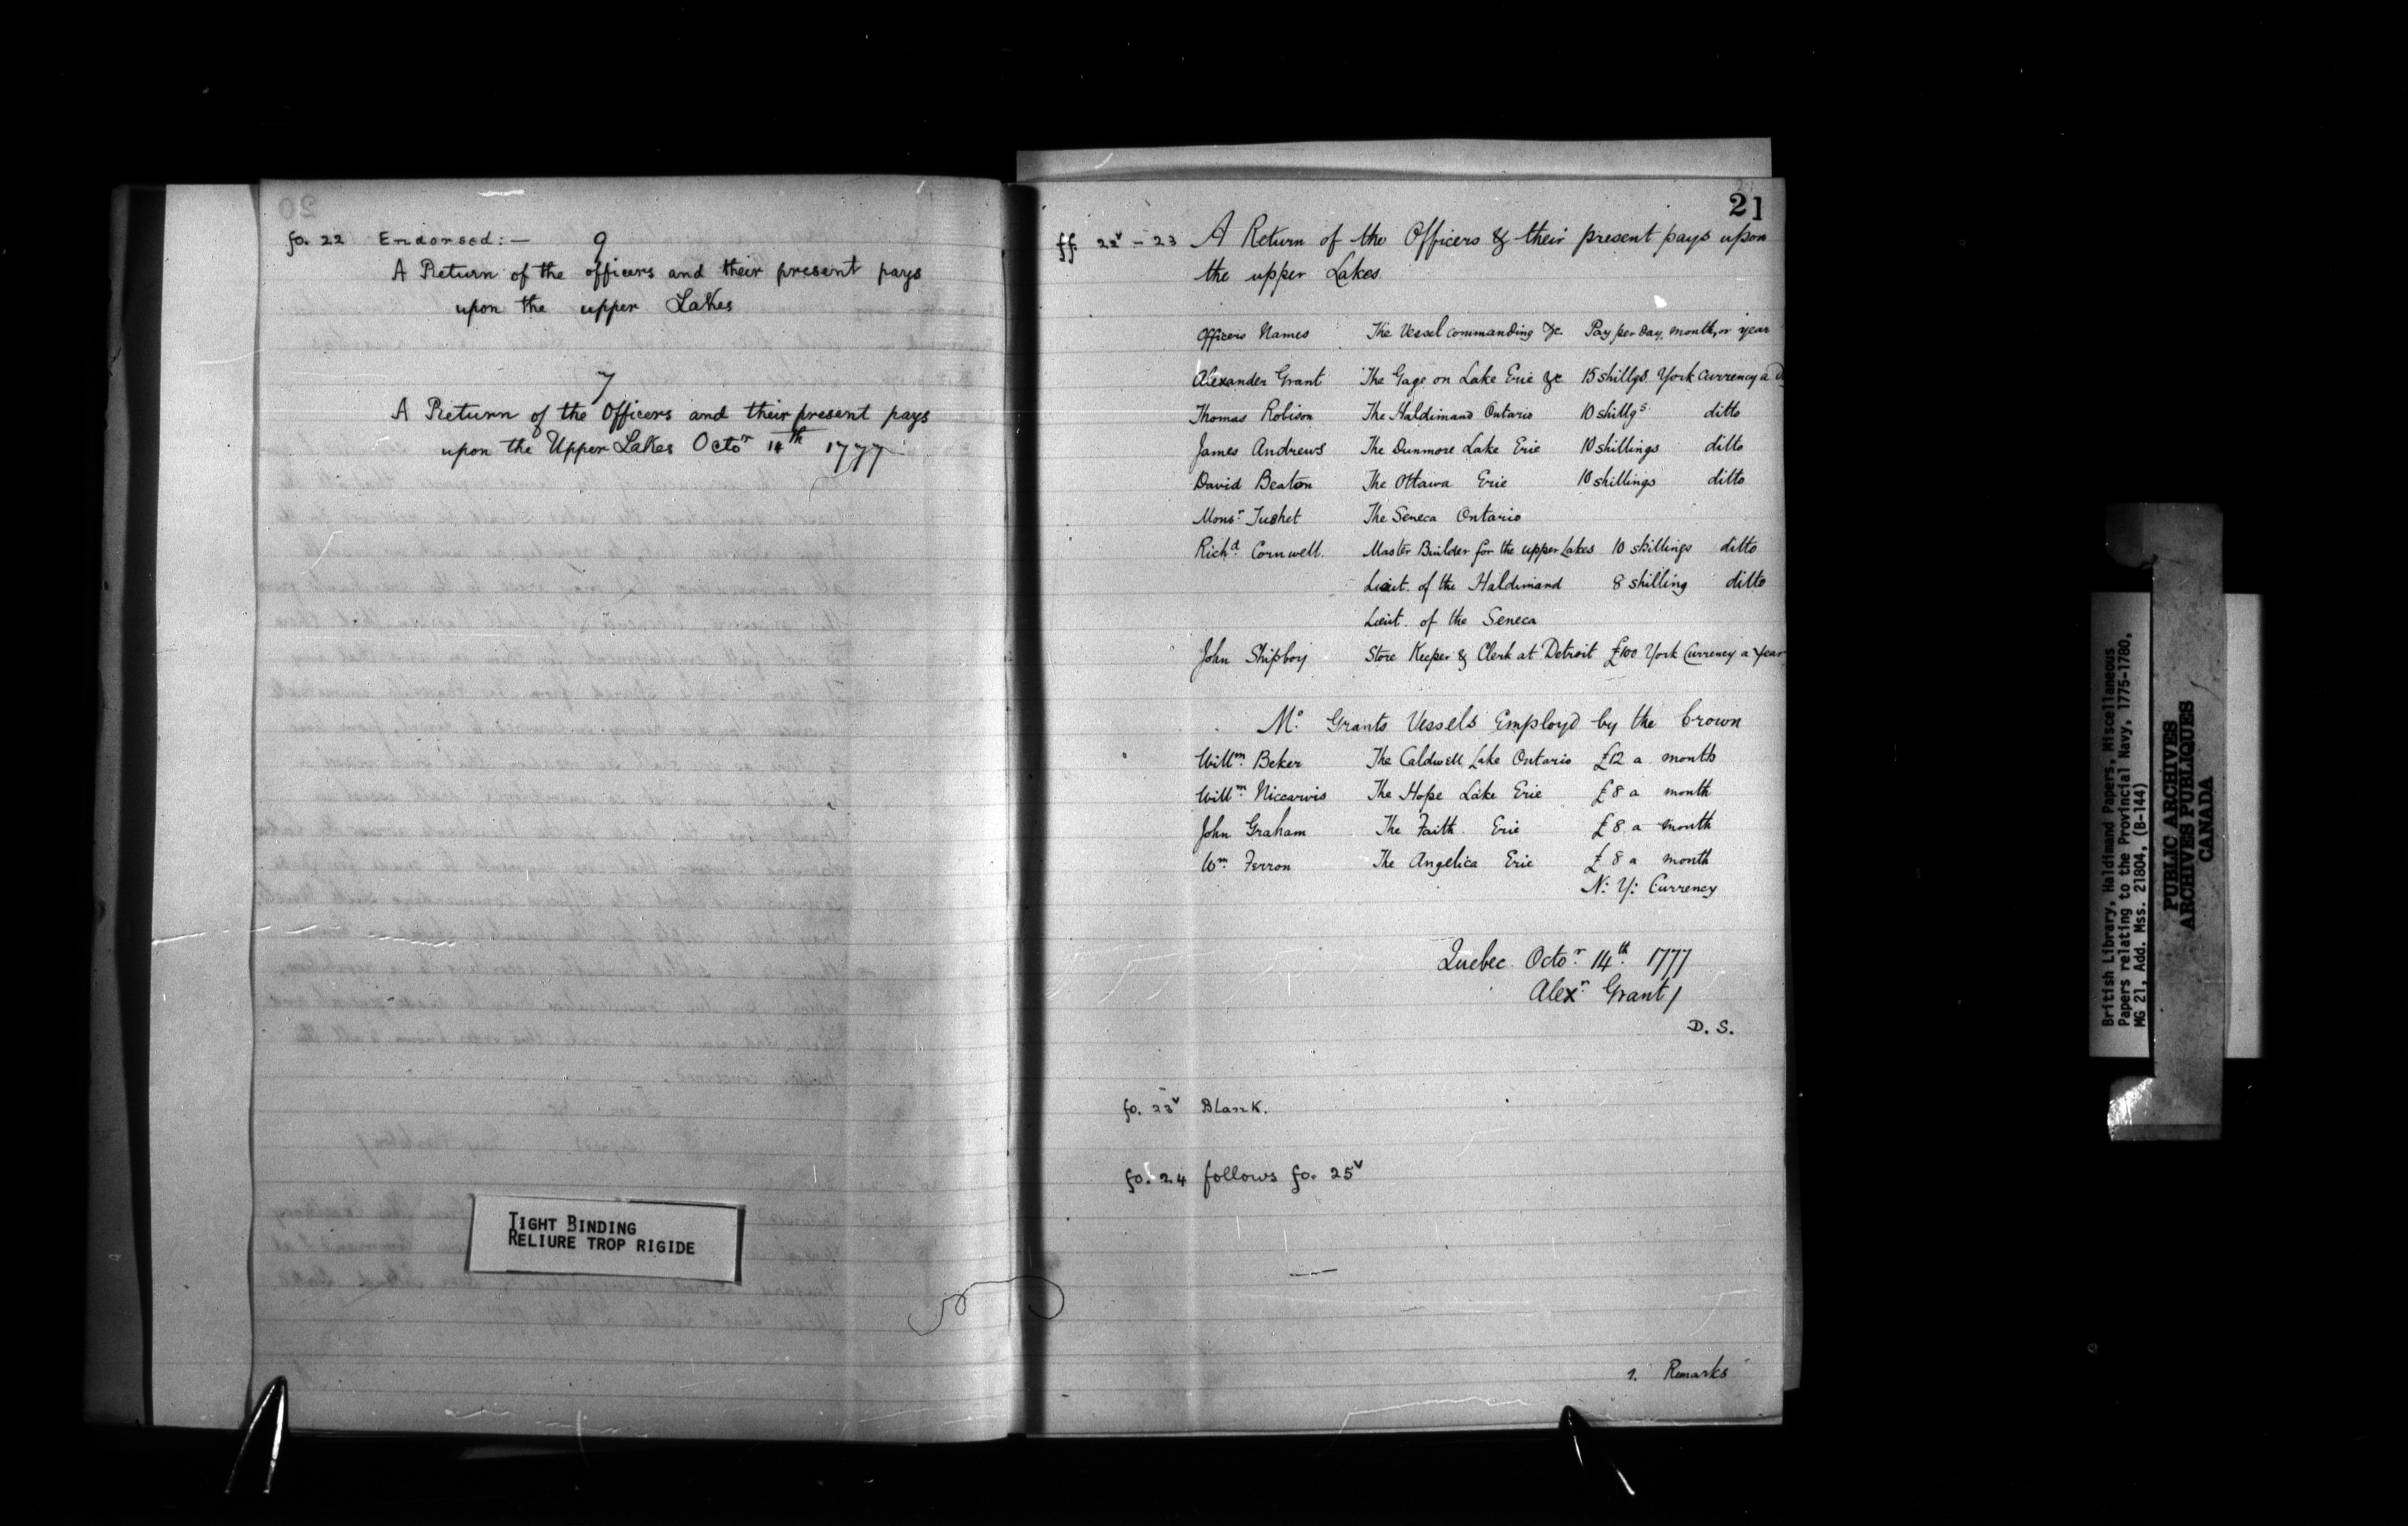 fo. 22 Endorsed:— 9
A Return of the officers and their present pays
upon the upper Lakes
7
A Return of the Officers and their present pays
upon the Upper Lakes Octor 14th 1777
TIGHT BINDING
RELIURE TROP RIGIDE
21
ff. 22v – 23 A Return of the Officers & their present pays upon
the upper Lakes.
Officers Names The Vessel commanding &c. Pay per day, month, or year
Alexander Grant The Gage on Lake Erie &c 15 shillgs York Currency a
Thomas Robison The Haldimand Ontario 10 shillgs. ditto
James Andrews The Dunmore Lake Erie 10 shillings ditto
David Beaton The Ottawa Erie 10 shillings ditto
Monsr. Tushet The Seneca Ontario
Richd. Cornwell. Master Builder for the upper Lakes 10 shillings ditto
Lieut. of the Haldimand 8 shilling ditto
Lieut. of the Seneca
John Shipboy Store Keeper & Clerk at Detroit £100 York Currency a Year
Mr. Grants Vessels Employd by the Crown
Willm. Beker The Caldwell Lake Ontario £12 a month
Willm. Niccarvis The Hope Lake Erie £8 a month
John Graham The Faith Erie £8 a month
Wm. Ferron The Angelica Erie £8 a month
N: Y: Currency
Quebec Octor. 14th. 1777
Alexr. Grant/
D. S.
fo. 23v Blank.
fo. 24 follows fo. 25v
1. Remarks
British Library, Haldimand Papers, Miscellaneous
Papers relating to the Provincial Navy, 1775-1780,
MG 21, Add. Mss. 21804, (B-144)
PUBLIC ARCHIVES
ARCHIVES PUBLIQUES
CANADA